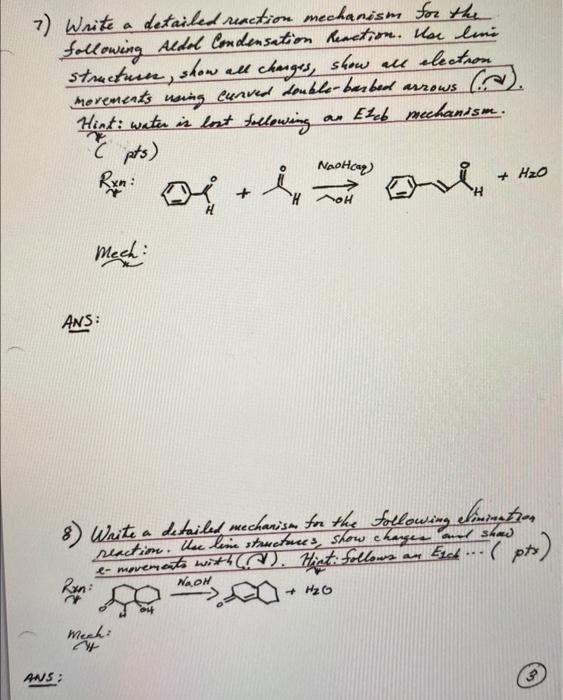 7) Write a detailed reaction mechanism for the
following Aldol Condensation Reaction. Use line
structures, show all charges, show all electron
movements using curved double-barbed arrows ( ).
Hint: water is lost following an E1cb mechanism.
( pts)
Rxn: O H + O H NaOH(aq) OH O H + H2O
Mech:
ANS:
8) Write a detailed mechanism for the following elimination
reaction. Use line structures, show charges and show
e- movements with ( ). Hint: follows an E1cb ... ( pts)
Rxn: O H OH NaOH O + H2O
Mech:
ANS:
3